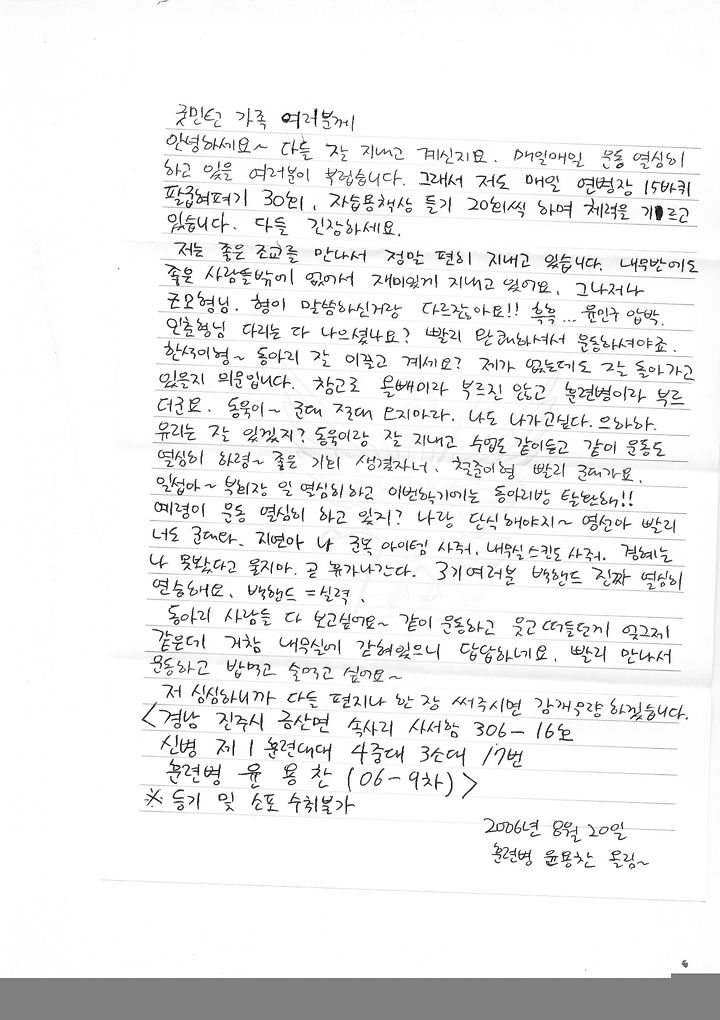 굿민턴 가족 여러분께
안녕하세요~ 다들 잘 지내고 계신지요. 매일매일 운동 열심히
하고 있을 여러분이 부럽습니다. 그래서 저도 매일 연병장 15바퀴
팔굽혀펴기 30회, 자습용책상 들기 20회씩 하며 체력을 기르고
있습니다. 다들 긴장하세요.
저는 좋은 조교를 만나서 정말 편히 지내고 있습니다. 내무반에도
좋은 사람들밖에 없어서 재미있게 지내고 있어요. 그나저나
형님. 형이 말씀하신거랑 다르잖아요!! 흑흑... 윤민구 압박.
인출형님 다리는 다 나으셨나요? 빨리 완쾌하셔서 운동하셔야죠.
한석이형~ 동아리 잘 이끌고 계세요? 제가 없는데도 잘 돌아가고
있을지 의문입니다. 참고로 올빼미라 부르진 않고 훈련병이라 부르
더군요. 동욱이~ 군대 절대 오지마라. 나도 나가고싶다. 으하하.
유리는 잘 있겠지? 동욱이랑 잘 지내고 수영도 같이듣고 같이 운동도
열심히 하렴~ 좋은 기회 생겼자너. 철준이형 빨리 군대가요.
일섭아~ 부회장 일 열심히하고 이번학기에는 동아리방 탈환해!!
예령이 운동 열심히 하고 있지? 나랑 단식해야지~ 영선아 빨리
너도 군대와. 지연아 나 군복 아이템 사줘. 내무실스킨도 사줘. 경혜는
나 못봤다고 울지마. 곧 휴가나간다. 3기여러분 백핸드 진짜 열심히
연습해요. 백핸드 = 실력.
동아리 사람들 다 보고싶어요~ 같이 운동하고 웃고떠들던게 엊그제
같은데 거참 내무실에 갇혀있으니 답답하네요. 빨리 만나서
운동하고 밥먹고 술먹고 싶어요~
저 심심하니까 다들 편지나 한 장 써주시면 감개무량하겠습니다.
<경남 진주시 금산면 속사리 사서함 306-16호
신병 제 1 훈련대대 4중대 3소대 17번
훈련병 윤 용 찬 (06-9차)>
※ 등기 및 소포 수취불가
2006년 8월 20일
훈련병 윤용찬 올림~